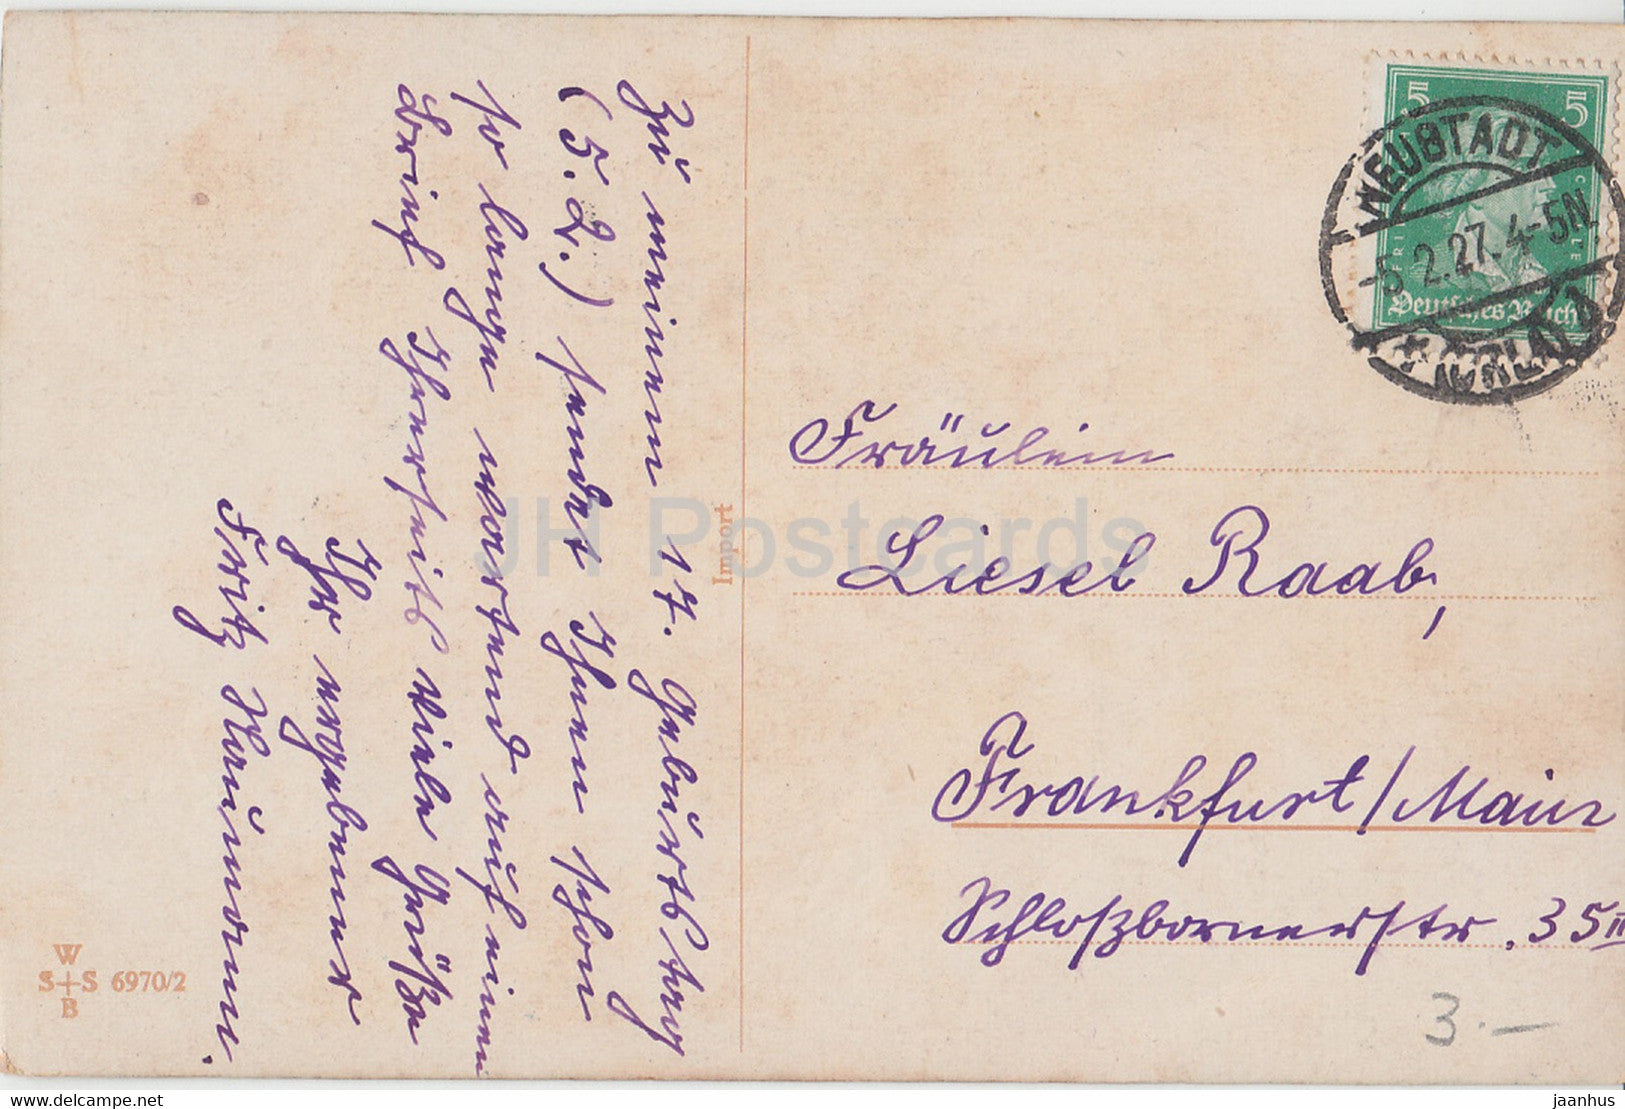 Zu meinem 17. Geburtstag
(5.2.) sendet Ihnen schon
so lange wartend auf einen
Brief Ihrerseits viele Grüße
Ihr ergebener
Fritz Haumann.
Import
W
S+S 6970/2
B
5 5
Deutsches Reich
NEUSTADT
-5.2.27. 4-5N
Fräulein
Liesel Raab,
Frankfurt/Main
Schloßbornerstr. 35 II
3.—
JH Postcards
delcampe.net
jaanhus